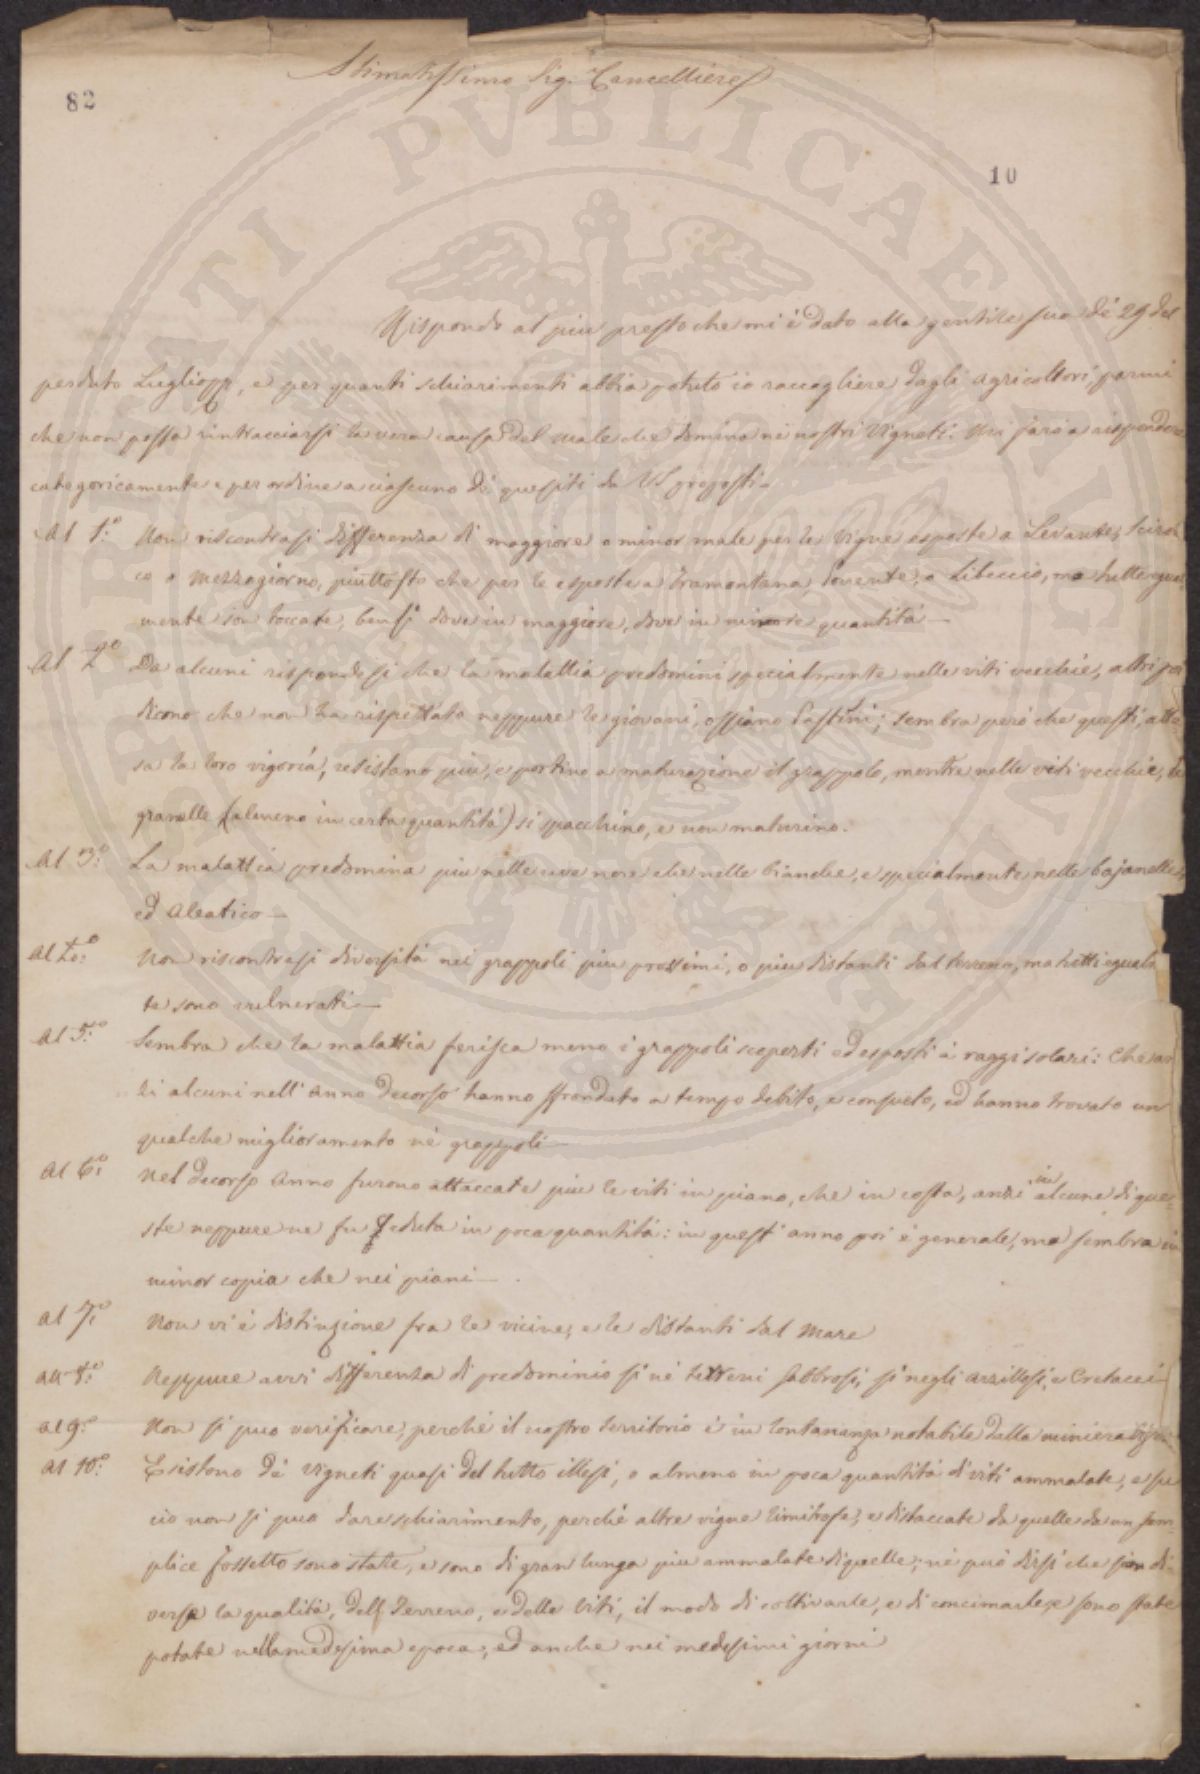 Stimatissimo Sig. Cancelliere
82
10
Rispondo al piu presto che mi è dato alla gentile sua de' 29 del
perduto Luglio, e per quanti schiarimenti abbia potuto io raccogliere dagli agricoltori, parmi
che non possa rintracciarsi la vera causa del male che domina nei nostri Vigneti. Mi farò a rispondere
categoricamente e per ordine a ciascuno de' quesiti da VS proposti.
Al 1.º Non riscontrasi differenza di maggiore o minor male per le Vigne esposte a Levante, Sciroc
co o Mezzogiorno, piuttosto che per le esposte a Tramontana, Ponente, o Libeccio, ma tutte egual
mente son toccate, bensì dove in maggiore, dove in minore quantità —
Al 2º Da alcuni rispondesi che la malattia predomini specialmente nelle viti vecchie, altri poi
dicono che non ha rispettato neppure le giovani, ossiano Pastini; sembra però che questi, atte
sa la loro vigoria, resistano piu, e portino a maturazione il grappolo, mentre nelle viti vecchie, le
granelle (almeno in certa quantità) si spacchino, e non maturino.
Al 3.º La malattia predomina piu nelle uve nere che nelle bianche, e specialmente nelle
ed Aleatico —
Al 4.º Non riscontrasi diversità nei grappoli piu prossimi, o piu distanti dal terreno, ma tutti egual
te sono vulnerati —
Al 5.º Sembra che la malattia ferisca meno i grappoli scoperti ed esposti a' raggi solari: Che an
zi alcuni nell' Anno decorso hanno sfrondato a tempo debito, e consueto, ed hanno trovato un
qualche miglioramento ne' grappoli —
Al 6.º Nel decorso Anno furono attaccate piu le viti in piano, che in costa, anzi in alcune di que-
ste neppure ne fu veduta in poca quantità: in quest' anno poi è generale, ma sembra in
minor copia che nei piani —
Al 7.º Non vi è distinzione fra le vicine, e le distanti dal Mare
All' 8.º Neppure avvi differenza di predominio sì ne' terreni sabbiosi, sì negli argillosi, e Cretacei
Al 9.º Non si puo verificare, perché il nostro territorio è in lontananza notabile dalla miniera
Al 10.º Esistono de' Vigneti quasi del tutto illesi, o almeno in poca quantità di viti ammalate, e su
ciò non si puo dare schiarimento, perché altre vigne limitrofe, e distaccate da quelle da un sem-
plice fossetto sono state, e sono di gran lunga piu ammalate di quelle; né può dirsi che sian di-
verse la qualità, del Terreno, e delle Viti, il modo di coltivarle, e di concimarle, e sono state
potate nella medesima epoca, ed anche nei medesimi giorni